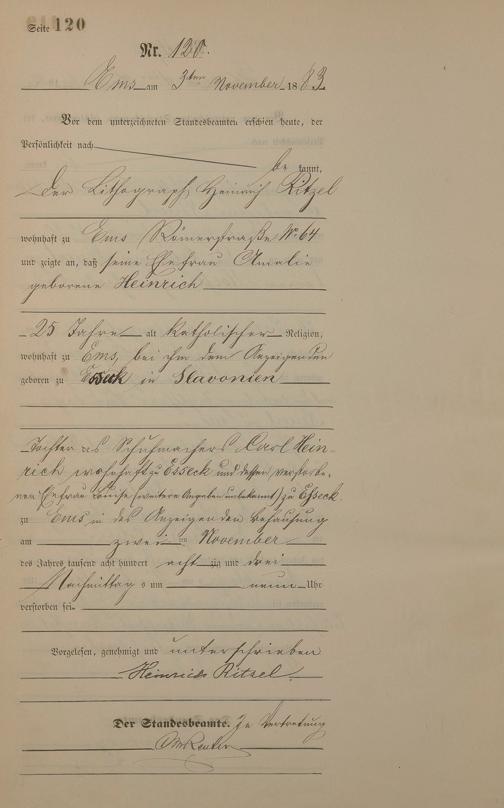 Seite 120
Nr. 120.
Ems am 3ten November 1883.
Vor dem unterzeichneten Standesbeamten erschien heute, der
Persönlichkeit nach
be kannt,
der Lithograph Heinrich Ritzel
wohnhaft zu Ems Römerstraße No 64
und zeigte an, daß seine Ehefrau Amalie
geborene Heinrich
25 Jahre alt Katholischer Religion,
wohnhaft zu Ems, bei ihm dem Anzeigenden
geboren zu Esseck in Slavonien
Tochter des Schuhmachers Carl Hein-
rich wohnhaft zu Esseck und dessen verstorbe-
nen Ehefrau Louise (weitere Angaben unbekannt) zu Esseck
zu Ems in des Anzeigenden Behausung
am zwei ten November
des Jahres tausend acht hundert acht zig und drei
Nachmittags um neun Uhr
verstorben sei.
Vorgelesen, genehmigt und unterschrieben
Heinrich Ritzel
Der Standesbeamte. In Vertretung